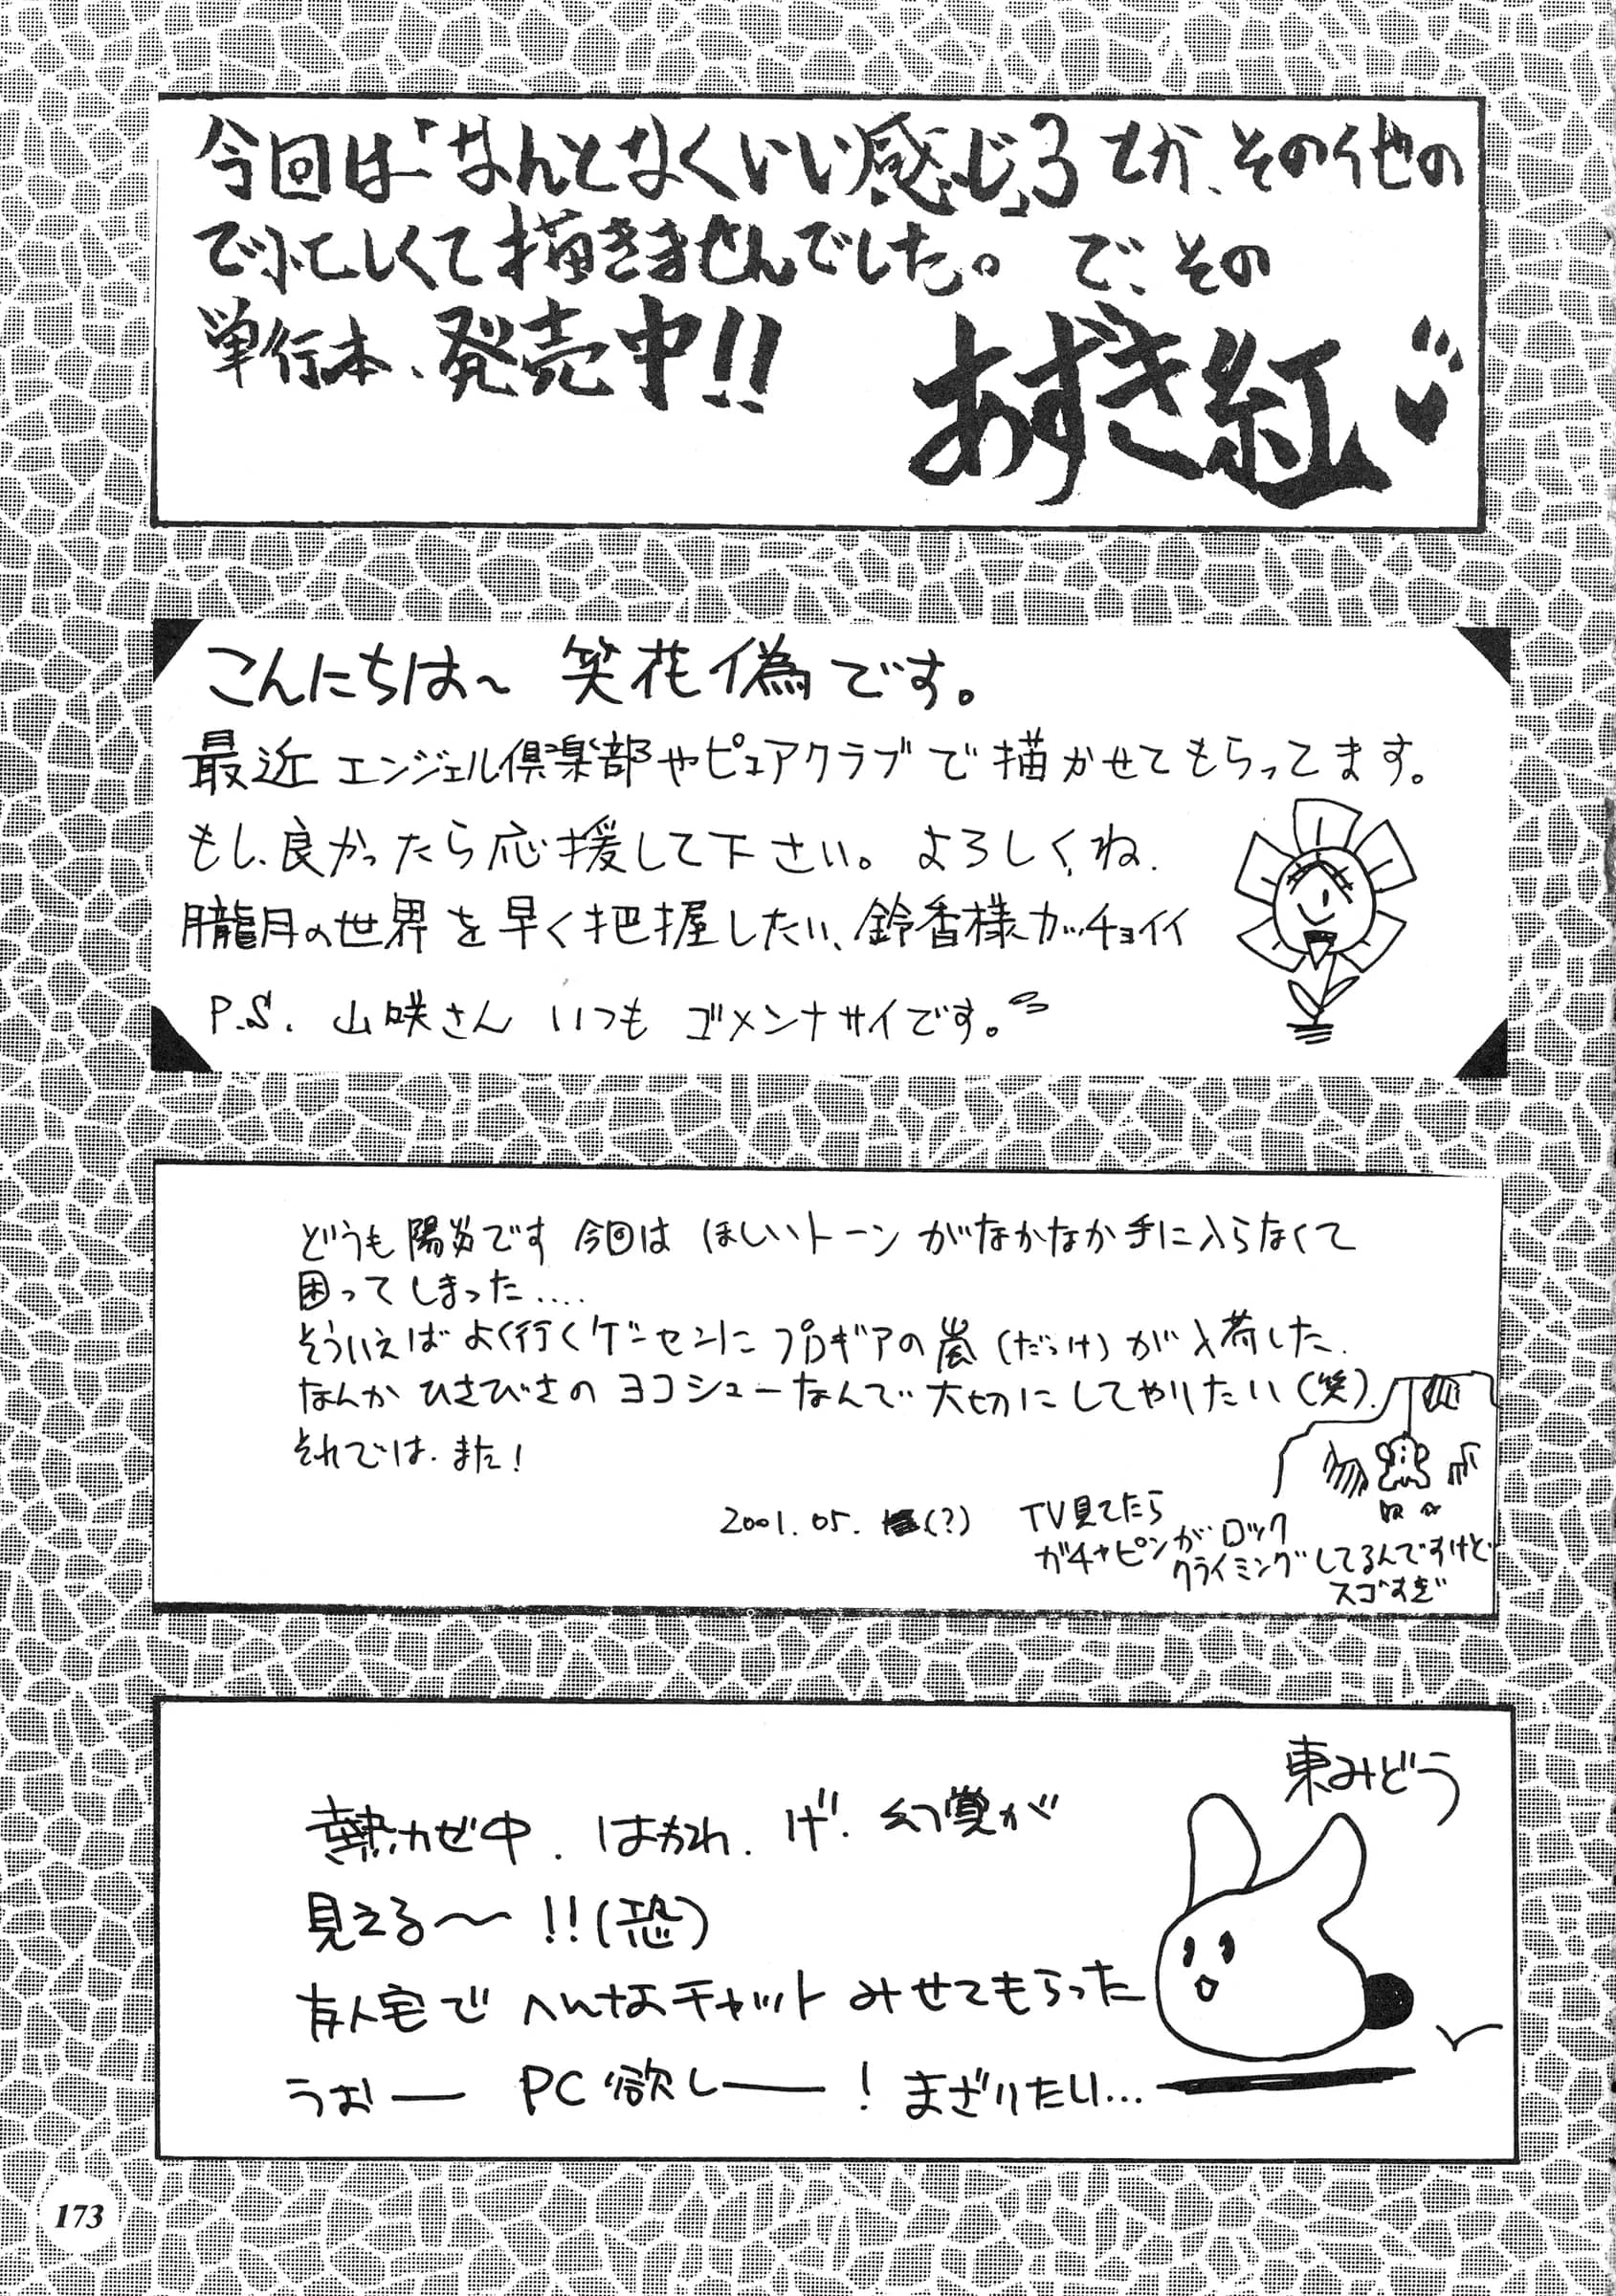 今回は「なんとなくいい感じ」3とか、その他の
で忙しくて描きませんでした。で、その
単行本、発売中!!
あずき紅
こんにちは～笑花偽です。
最近エンジェル倶楽部やピュアクラブで描かせてもらってます。
もし、良かったら応援して下さい。よろしくね.
朧月の世界を早く把握したい、鈴香様カッチョイイ
P.S. 山咲さんいつもゴメンナサイです。
どうも陽炎です 今回はほしいトーンがなかなか手に入らなくて
困ってしまった....
そういえばよく行くゲーセンにプロギアの嵐(だっけ)が入荷した.
なんかひさびさのヨコシューなんで大切にしてやりたい(笑).
それでは.また!
2001.05. (?)
TV見てたら
ガチャピンがロック
クライミングしてるんですけど
スゴすぎ
東みどう
熱カゼ中. はかれ. げ. 幻覚が
見える〜!!(恐)
友人宅でへんなチャットみせてもらった
うおー PC欲しー!まざりたい...
173